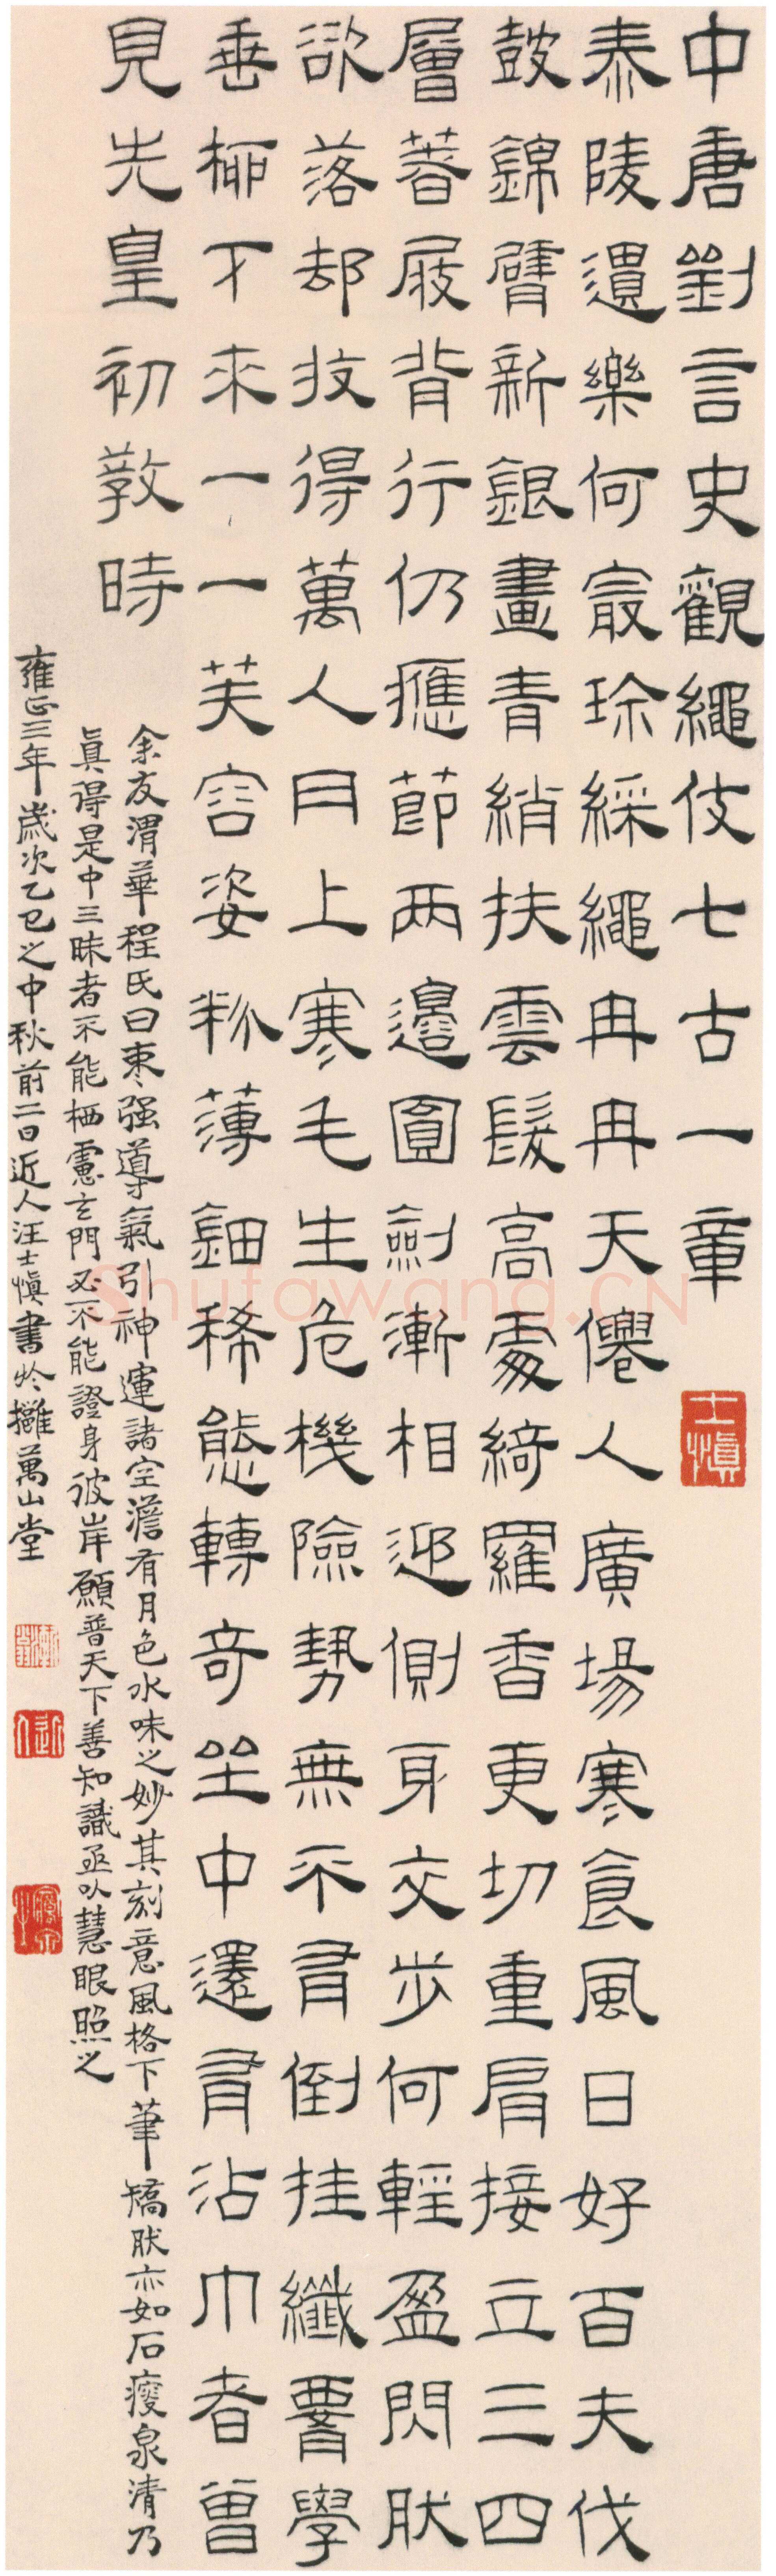 中唐劉言史觀繩伎七古一章
士慎
泰陵遺樂何最珍綵繩冉冉天僊人廣場寒食風日好百夫伐
鼓錦臂新銀畫青綃扶雲髮高處綺羅香更切重肩接立三四
層著屐背行仍應節兩邊圓劍漸相迎側身交步何輕盈閃肰
欲落却收得萬人肉上寒毛生危機險勢無不有倒挂纖腰學
垂柳下來一一芙容姿粉薄鈿稀態轉奇坐中還有沾巾者曾
見先皇初教時
余友渭華程氏曰棗强導氣引神運諸空澹有月色水味之妙其刻意風格下筆矯肰亦如石瘦泉清乃
真得是中三昧者不能栖慮玄門必不能證身彼岸願普天下善知識亟以慧眼照之
雍正三年歲次乙巳之中秋前二日近人汪士慎書於攤萬山堂
近人
Shufawang.CN